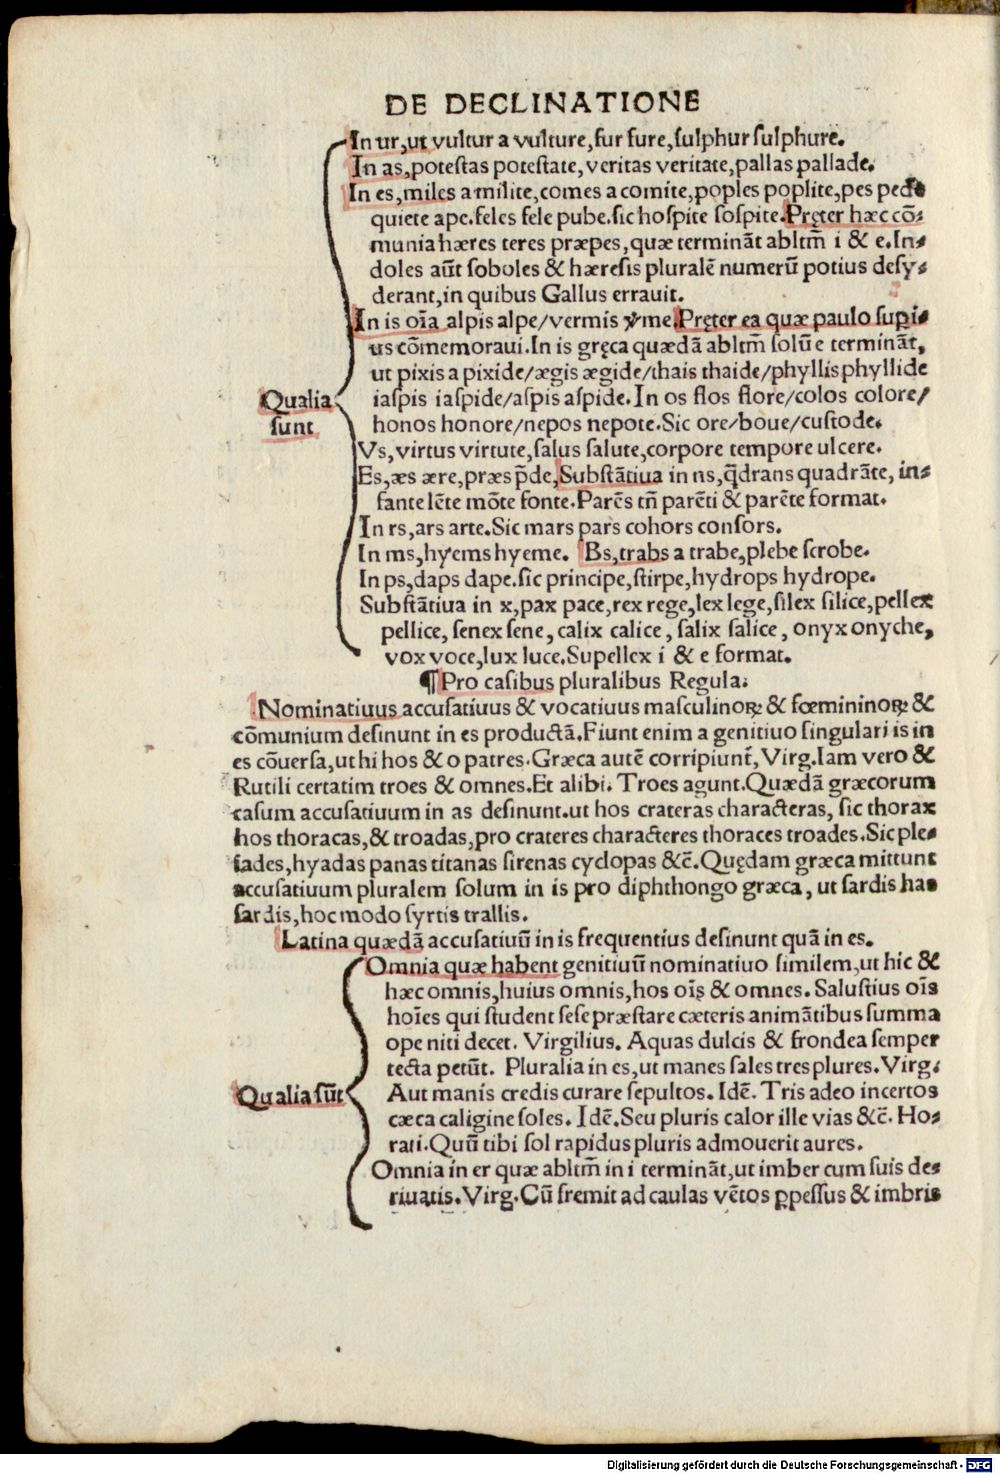 DE DECLINATIONE
In ur,ut vultur a vulture,fur fure,sulphur sulphure.
In as,potestas potestate,veritas veritate,pallas pallade.
In es,miles a milite,comes a comite,poples poplite,pes pede
quiete ape.feles fele pube.sic hospite sospite.Pręter hæc cō-
munia hæres teres præpes,quæ termināt abltm̄ i & e.In-
doles aūt soboles & hæresis pluralē numerū potius desy-
derant,in quibus Gallus erravit.
In is oīa alpis alpe/vermis vme.Pręter ea quæ paulo supi-
us cōmemoravi.In is gręca quædā abltm̄ solū e termināt,
ut pixis a pixide/ægis ægide/thais thaide/phyllis phyllide
Qualia sunt
iaspis iaspide/aspis aspide.In os flos flore/colos colore/
honos honore/nepos nepote.Sic ore/boue/custode.
Vs,virtus virtute,salus salute,corpore tempore ulcere.
Es,æs ære,præs p̄de,Substātiua in ns,q̄drans quadrāte, in-
fante lēte mōte fonte.Parēs tñ parēti & parēte format.
In rs,ars arte.Sic mars pars cohors consors.
In ms,hyems hyeme. Bs,trabs a trabe,plebe scrobe.
In ps,daps dape.sic principe,stirpe,hydrops hydrope.
Substātiua in x,pax pace,rex rege,lex lege,silex silice,pellex
pellice, senex sene, calix calice, salix salice, onyx onyche,
vox voce,lux luce.Supellex i & e format.
¶Pro casibus pluralibus Regula.
Nominatiuus accusatiuus & vocatiuus masculinoꝝ & fœmininoꝝ &
cōmunium desinunt in es productā.Fiunt enim a genitiuo singulari is in
es cōuersa,ut hi hos & o patres.Græca autē corripiunt̄,Virg.Iam vero &
Rutili certatim troes & omnes.Et alibi. Troes agunt.Quædā græcorum
casum accusatiuum in as desinunt.ut hos crateras characteras, sic thorax
hos thoracas,& troadas,pro crateres characteres thoraces troades.Sic ple-
iades,hyadas panas titanas sirenas cyclopas &c̄.Quędam græca mittunt
accusatiuum pluralem solum in is pro diphthongo græca, ut sardis has
sardis,hoc modo syrtis trallis.
Latina quædā accusatiuū in is frequentius desinunt quā in es.
Omnia quæ habent genitiuū nominatiuo similem,ut hic &
hæc omnis,huius omnis,hos oīs & omnes. Salustius oīs
hoīes qui student sese præstare cæteris animātibus summa
ope niti decet. Virgilius. Aquas dulcis & frondea semper
tecta petūt. Pluralia in es,ut manes sales tres plures. Virg.
Qualia sūt
Aut manis credis curare sepultos. Idē. Tris adeo incertos
cæca caligine soles. Idē.Seu pluris calor ille vias &c̄. Ho-
rati.Quū tibi sol rapidus pluris admouerit aures.
Omnia in er quæ abltm̄ in i termināt,ut imber cum suis de-
riuatis.Virg.Cū fremit ad caulas vētos ꝑpessus & imbris
Digitalisierung gefördert durch die Deutsche Forschungsgemeinschaft - DFG